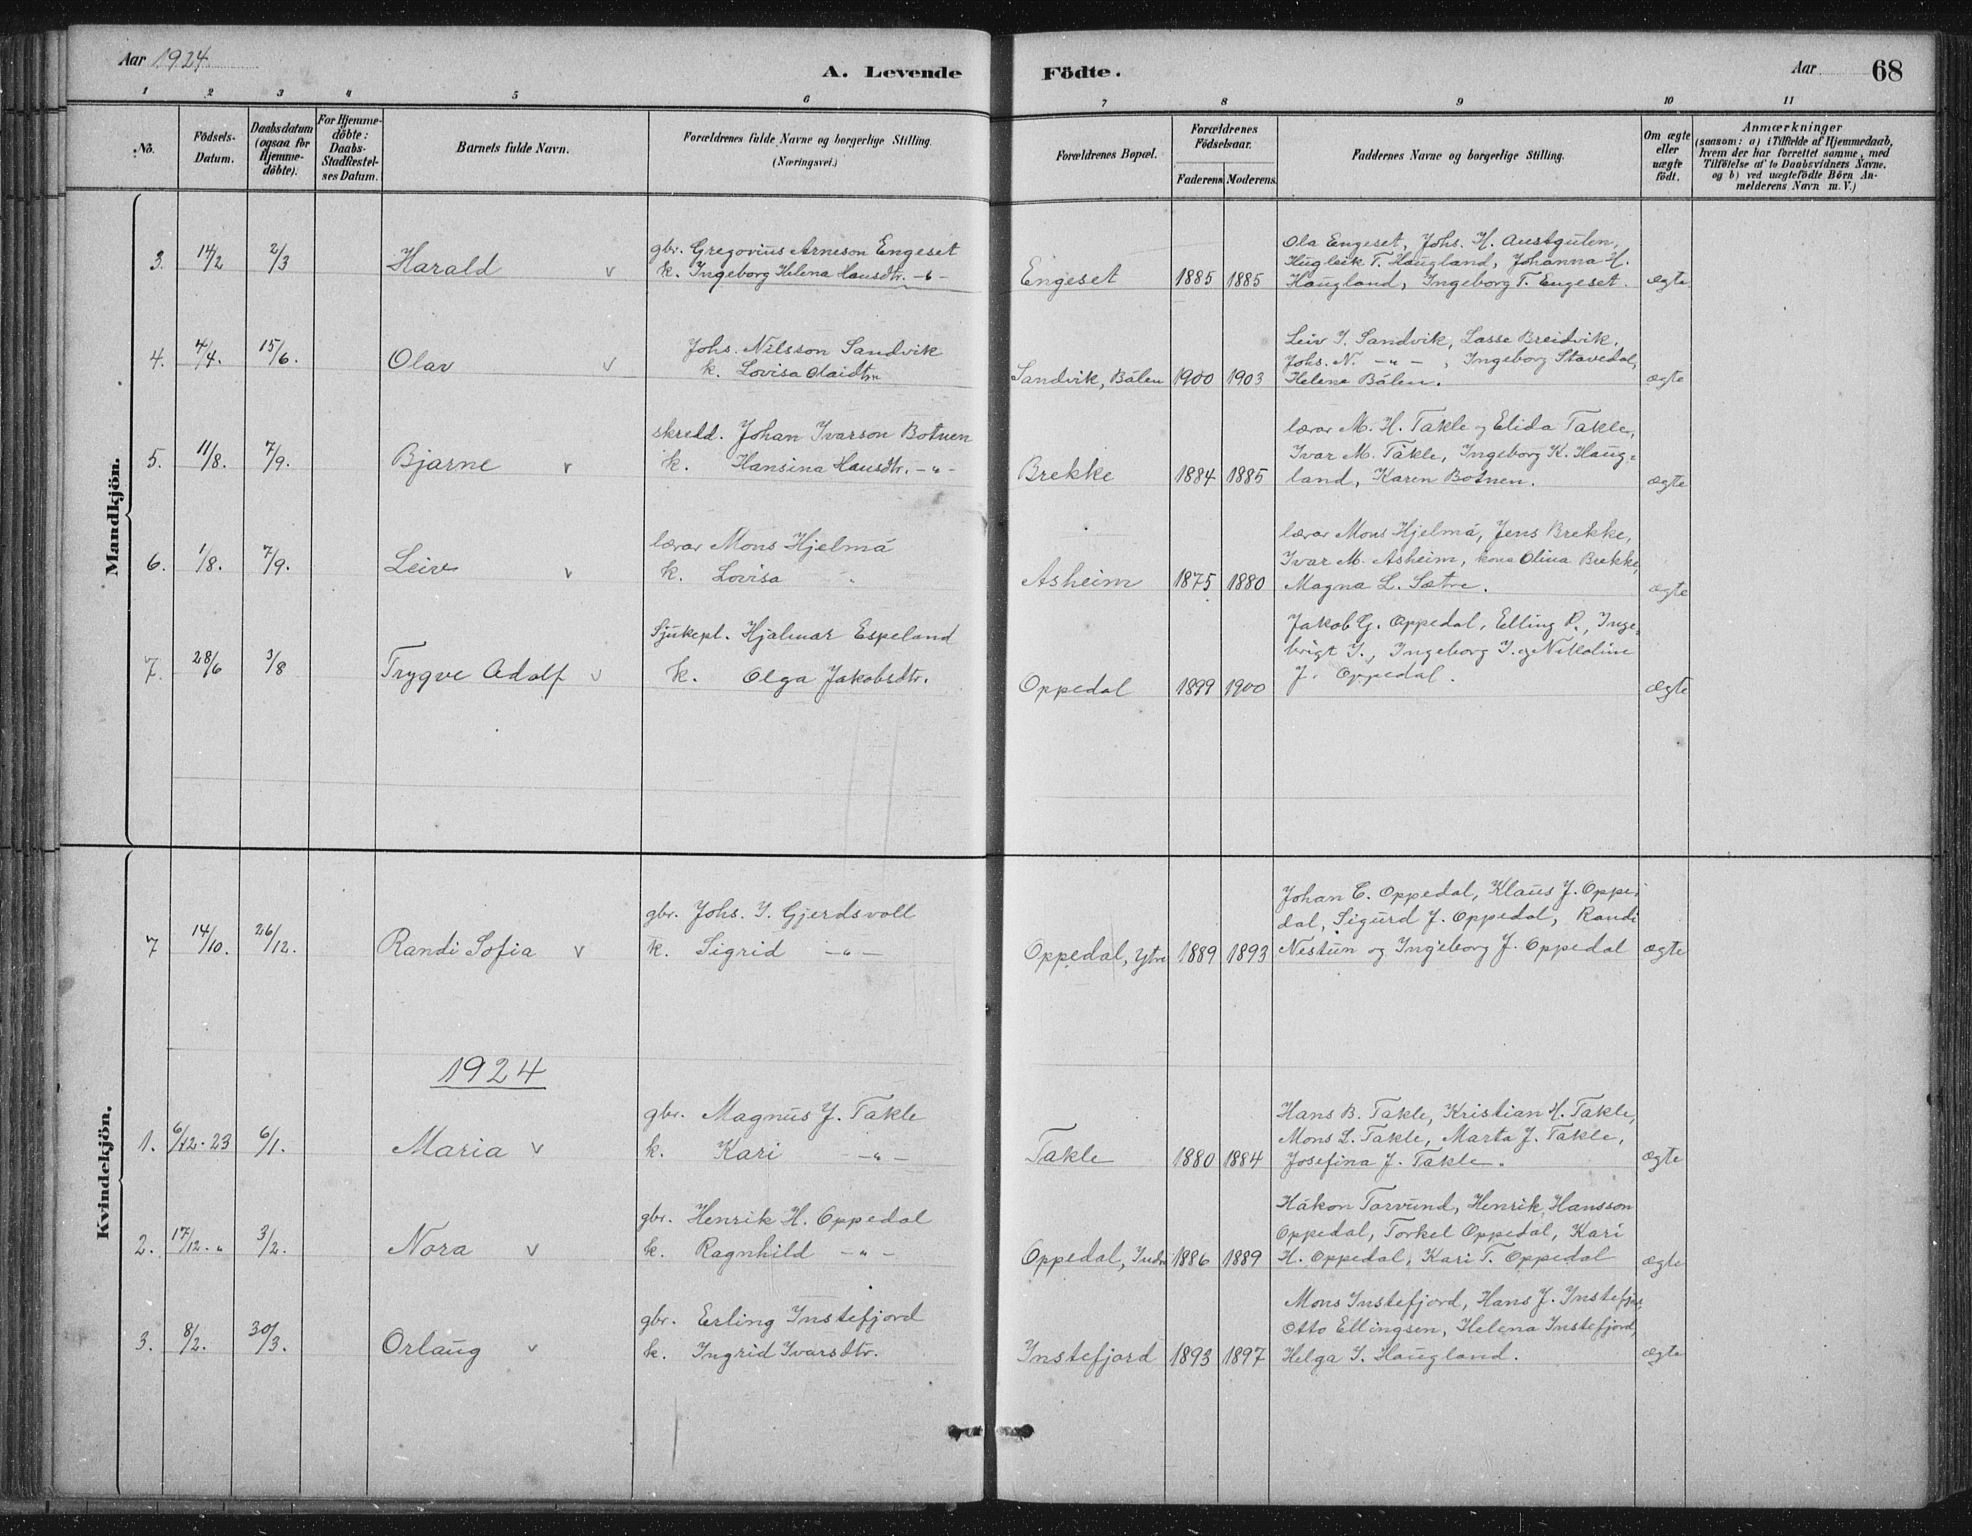 Aar 1924.
A. Levende Födte.
Aar 68
1 2 3 4 5 6 7 8 9 10 11
No.
Födsels-
Datum.
Daabsdatum
(ogsaa for
Hjemme-
döbte).
For Hjemme-
döbte:
Daabs-
Stadfæstel-
ses Datum.
Barnets fulde Navn.
Forældrenes fulde Navne og borgerlige Stilling.
(Næringsvei.)
Forældrenes Bopæl.
Forældrenes
Födselsaar.
Faderens. Moderens.
Faddernes Navne og borgerlige Stilling.
Om ægte
eller
uægte
födt.
Anmærkninger
(saasom: a) i Tilfælde af Hjemmedaab,
hvem der har forrettet samme, med
Tilföielse af to Daabsvidners Navne,
og b) ved uægtefödte Börn An-
melderens Navn m. V.)
Mandkjön.
3. 14/2 2/3 Harald v
gbr. Gregorius Arneson Engeset
k. Ingeborg Helena Hansdtr. -"-
Engeset 1885 1885
Ola Engeset, Johs. H. Austgulen,
Hugleik T. Haugland, Johanna H.
Haugland, Ingeborg T. Engeset.
ægte
4. 4/4. 15/6. Olav v
Johs. Nilsson Sandvik
k. Lovisa Olaidtr.
Sandvik, Bölen 1900 1903
Leiv J. Sandvik, Lasse Breidvik,
Johs. N. -"-, Ingeborg Stavedal,
Helena Bölen.
ægte
5. 11/8. 7/9. Bjarne v
skredd. Johan Ivarson Botnen
k. Hansina Hansdtr. -"-
Brekke 1884 1885
lærar M. H. Takle og Elida Takle,
Ivar M. Takle, Ingeborg K. Haug-
land, Karen Botnen.
ægte
6. 1/8. 7/9. Leiv v
lærar Mons Hjelmå
k. Lovisa "
Asheim 1875 1880
lærar Mons Hjelmå, Jens Brekke,
Ivar M. Asheim, kona Olina Brekke,
Magna L. Sætre.
ægte
7. 28/6 3/8 Trygve Adolf v
Sjukepl. Hjalmar Espeland
k. Olga Jakobsdtr.
Oppedal 1899 1900
Jakob G. Oppedal, Elling P., Inge-
brigt J., Ingeborg J. og Nikoline
J. Oppedal.
ægte
Kvindekjön.
7 14/10. 26/12. Randi Sofia v
gbr. Johs. I. Gjerdsvoll
k. Sigrid -"-
Oppedal, Ytre 1889 1893
Johan C. Oppedal, Klaus J. Oppe-
dal, Sigurd J. Oppedal, Randi
Nestun og Ingeborg J. Oppedal
ægte
1924
1. 6/12-23 6/1. Maria v
gbr. Magnus J. Takle
k. Kari -"-
Takle 1880 1884
Hans B. Takle, Kristian H. Takle,
Mons L. Takle, Marta J. Takle,
Josefina J. Takle.
ægte
2. 17/12-" 3/2. Nora v
gbr. Henrik H. Oppedal
k. Ragnhild -"-
Oppedal, Indre 1886 1889
Håkon Torvund, Henrik Hansson
Oppedal, Torkel Oppedal, Kari
H. Oppedal, Kari T. Oppedal
ægte
3. 8/2. 30/3. Orlaug v
gbr. Erling Instefjord
k. Ingrid Ivarsdtr.
Instefjord 1893 1897
Mons Instefjord, Hans J. Instefjord,
Otto Ellingsen, Helena Instefjord,
Helga I. Haugland.
ægte